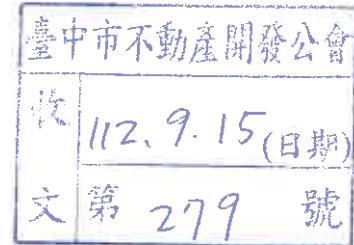 臺中市不動產開發公會
收 112.9.15(日期)
文 第 279 號